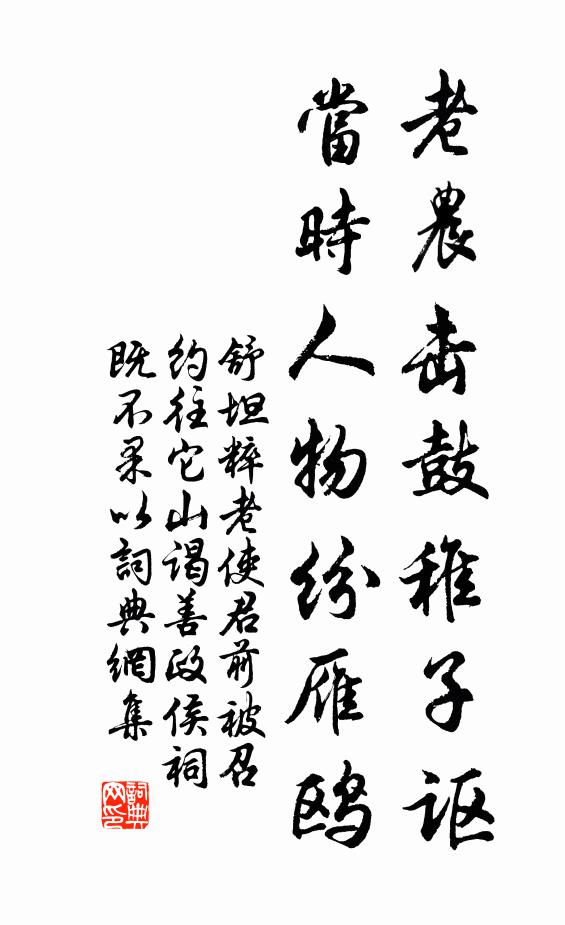 老農击鼓稚子讴
當時人物纷雁鸥
舒坦粹老使君前被召
約往它山谒善政侯祠
既不果以詞典網集
詞典网印